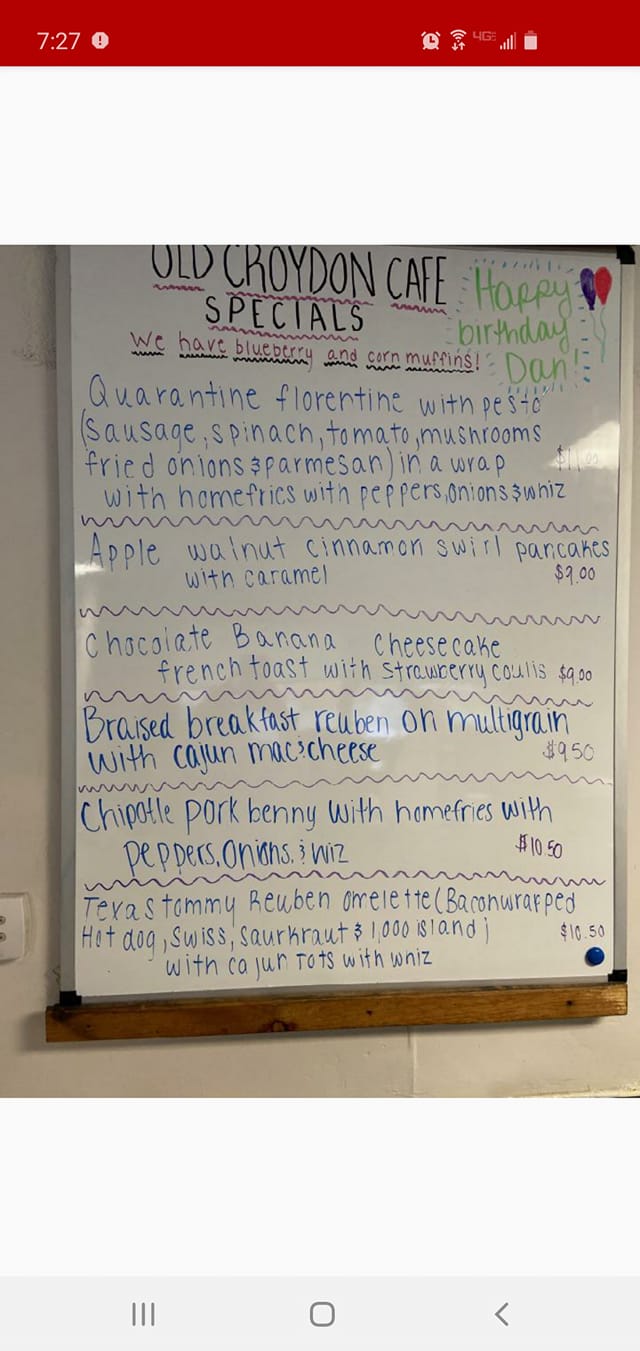 7:27
4GE
OLD CROYDON CAFE
SPECIALS
We have blueberry and corn muffins!
Happy
birthday
Dan!
Quarantine florentine with pesto
(Sausage, spinach, tomato, mushrooms
fried onions & parmesan) in a wrap $11.00
with homefries with peppers, onions & whiz
Apple walnut cinnamon swirl pancakes
with caramel $9.00
Chocolate Banana cheesecake
french toast with strawberry coulis $9.00
Braised breakfast reuben on multigrain
with cajun mac & cheese $9.50
Chipotle pork benny with homefries with
peppers, onions, & wiz $10.50
Texas tommy Reuben omelette (Baconwrapped
Hot dog, Swiss, Saurkraut & 1,000 island) $10.50
with cajun Tots with whiz